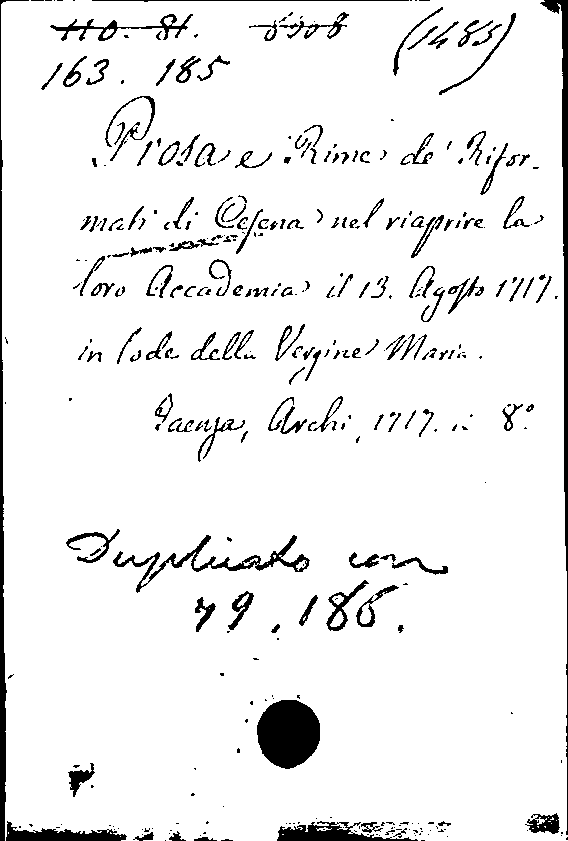 110. 81. (1485)
163. 185
Prosa e Rime de' Rifor-
mati di Cesena nel riaprire la
loro Accademia il 13. Agosto 1717.
in lode della Vergine Maria.
Faenza, Archi, 1717. in 8.°
Duplicato con
79. 186.